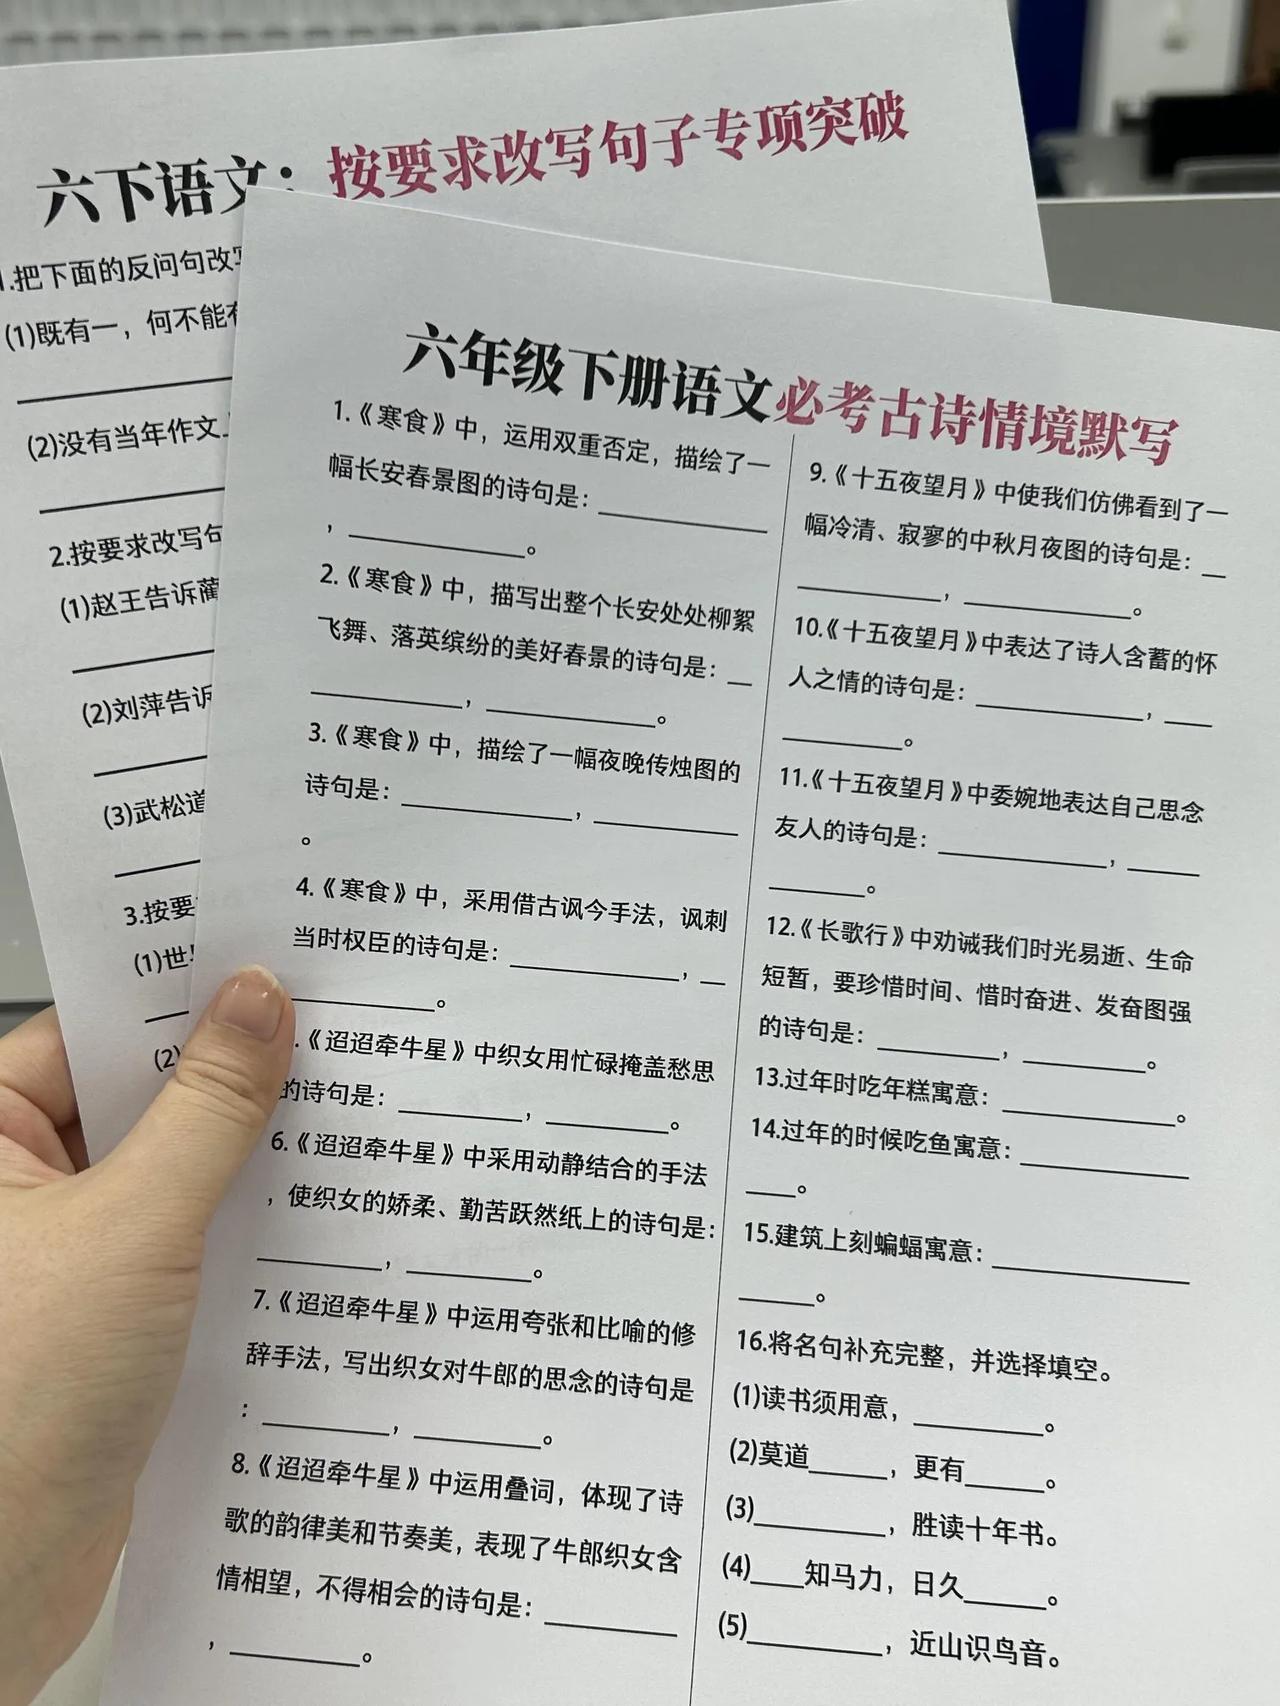 六下语文：按要求改写句子专项突破
1.把下面的反问句改写
(1)既有一，何不能有
(2)没有当年作文上
2.按要求改写句
(1)赵王告诉蔺
(2)刘萍告诉
(3)武松道
3.按要
(1)世界
(2)
六年级下册语文必考古诗情境默写
1.《寒食》中，运用双重否定，描绘了一
幅长安春景图的诗句是：____________
，____________。
2.《寒食》中，描写出整个长安处处柳絮
飞舞、落英缤纷的美好春景的诗句是：__
____________，____________。
3.《寒食》中，描绘了一幅夜晚传烛图的
诗句是：____________，____________
。
4.《寒食》中，采用借古讽今手法，讽刺
当时权臣的诗句是：____________，__
__________。
.《迢迢牵牛星》中织女用忙碌掩盖愁思
的诗句是：__________，__________。
6.《迢迢牵牛星》中采用动静结合的手法
，使织女的娇柔、勤苦跃然纸上的诗句是：
__________，__________。
7.《迢迢牵牛星》中运用夸张和比喻的修
辞手法，写出织女对牛郎的思念的诗句是
：__________，__________。
8.《迢迢牵牛星》中运用叠词，体现了诗
歌的韵律美和节奏美，表现了牛郎织女含
情相望，不得相会的诗句是：__________
，__________。
9.《十五夜望月》中使我们仿佛看到了一
幅冷清、寂寥的中秋月夜图的诗句是：__
__________，____________。
10.《十五夜望月》中表达了诗人含蓄的怀
人之情的诗句是：____________，____
________。
11.《十五夜望月》中委婉地表达自己思念
友人的诗句是：____________，______
______。
12.《长歌行》中劝诫我们时光易逝、生命
短暂，要珍惜时间、惜时奋进、发奋图强
的诗句是：__________，__________。
13.过年时吃年糕寓意：____________。
14.过年的时候吃鱼寓意：____________
____。
15.建筑上刻蝙蝠寓意：______________
______。
16.将名句补充完整，并选择填空。
(1)读书须用意，__________。
(2)莫道______，更有______。
(3)__________，胜读十年书。
(4)____知马力，日久______。
(5)__________，近山识鸟音。